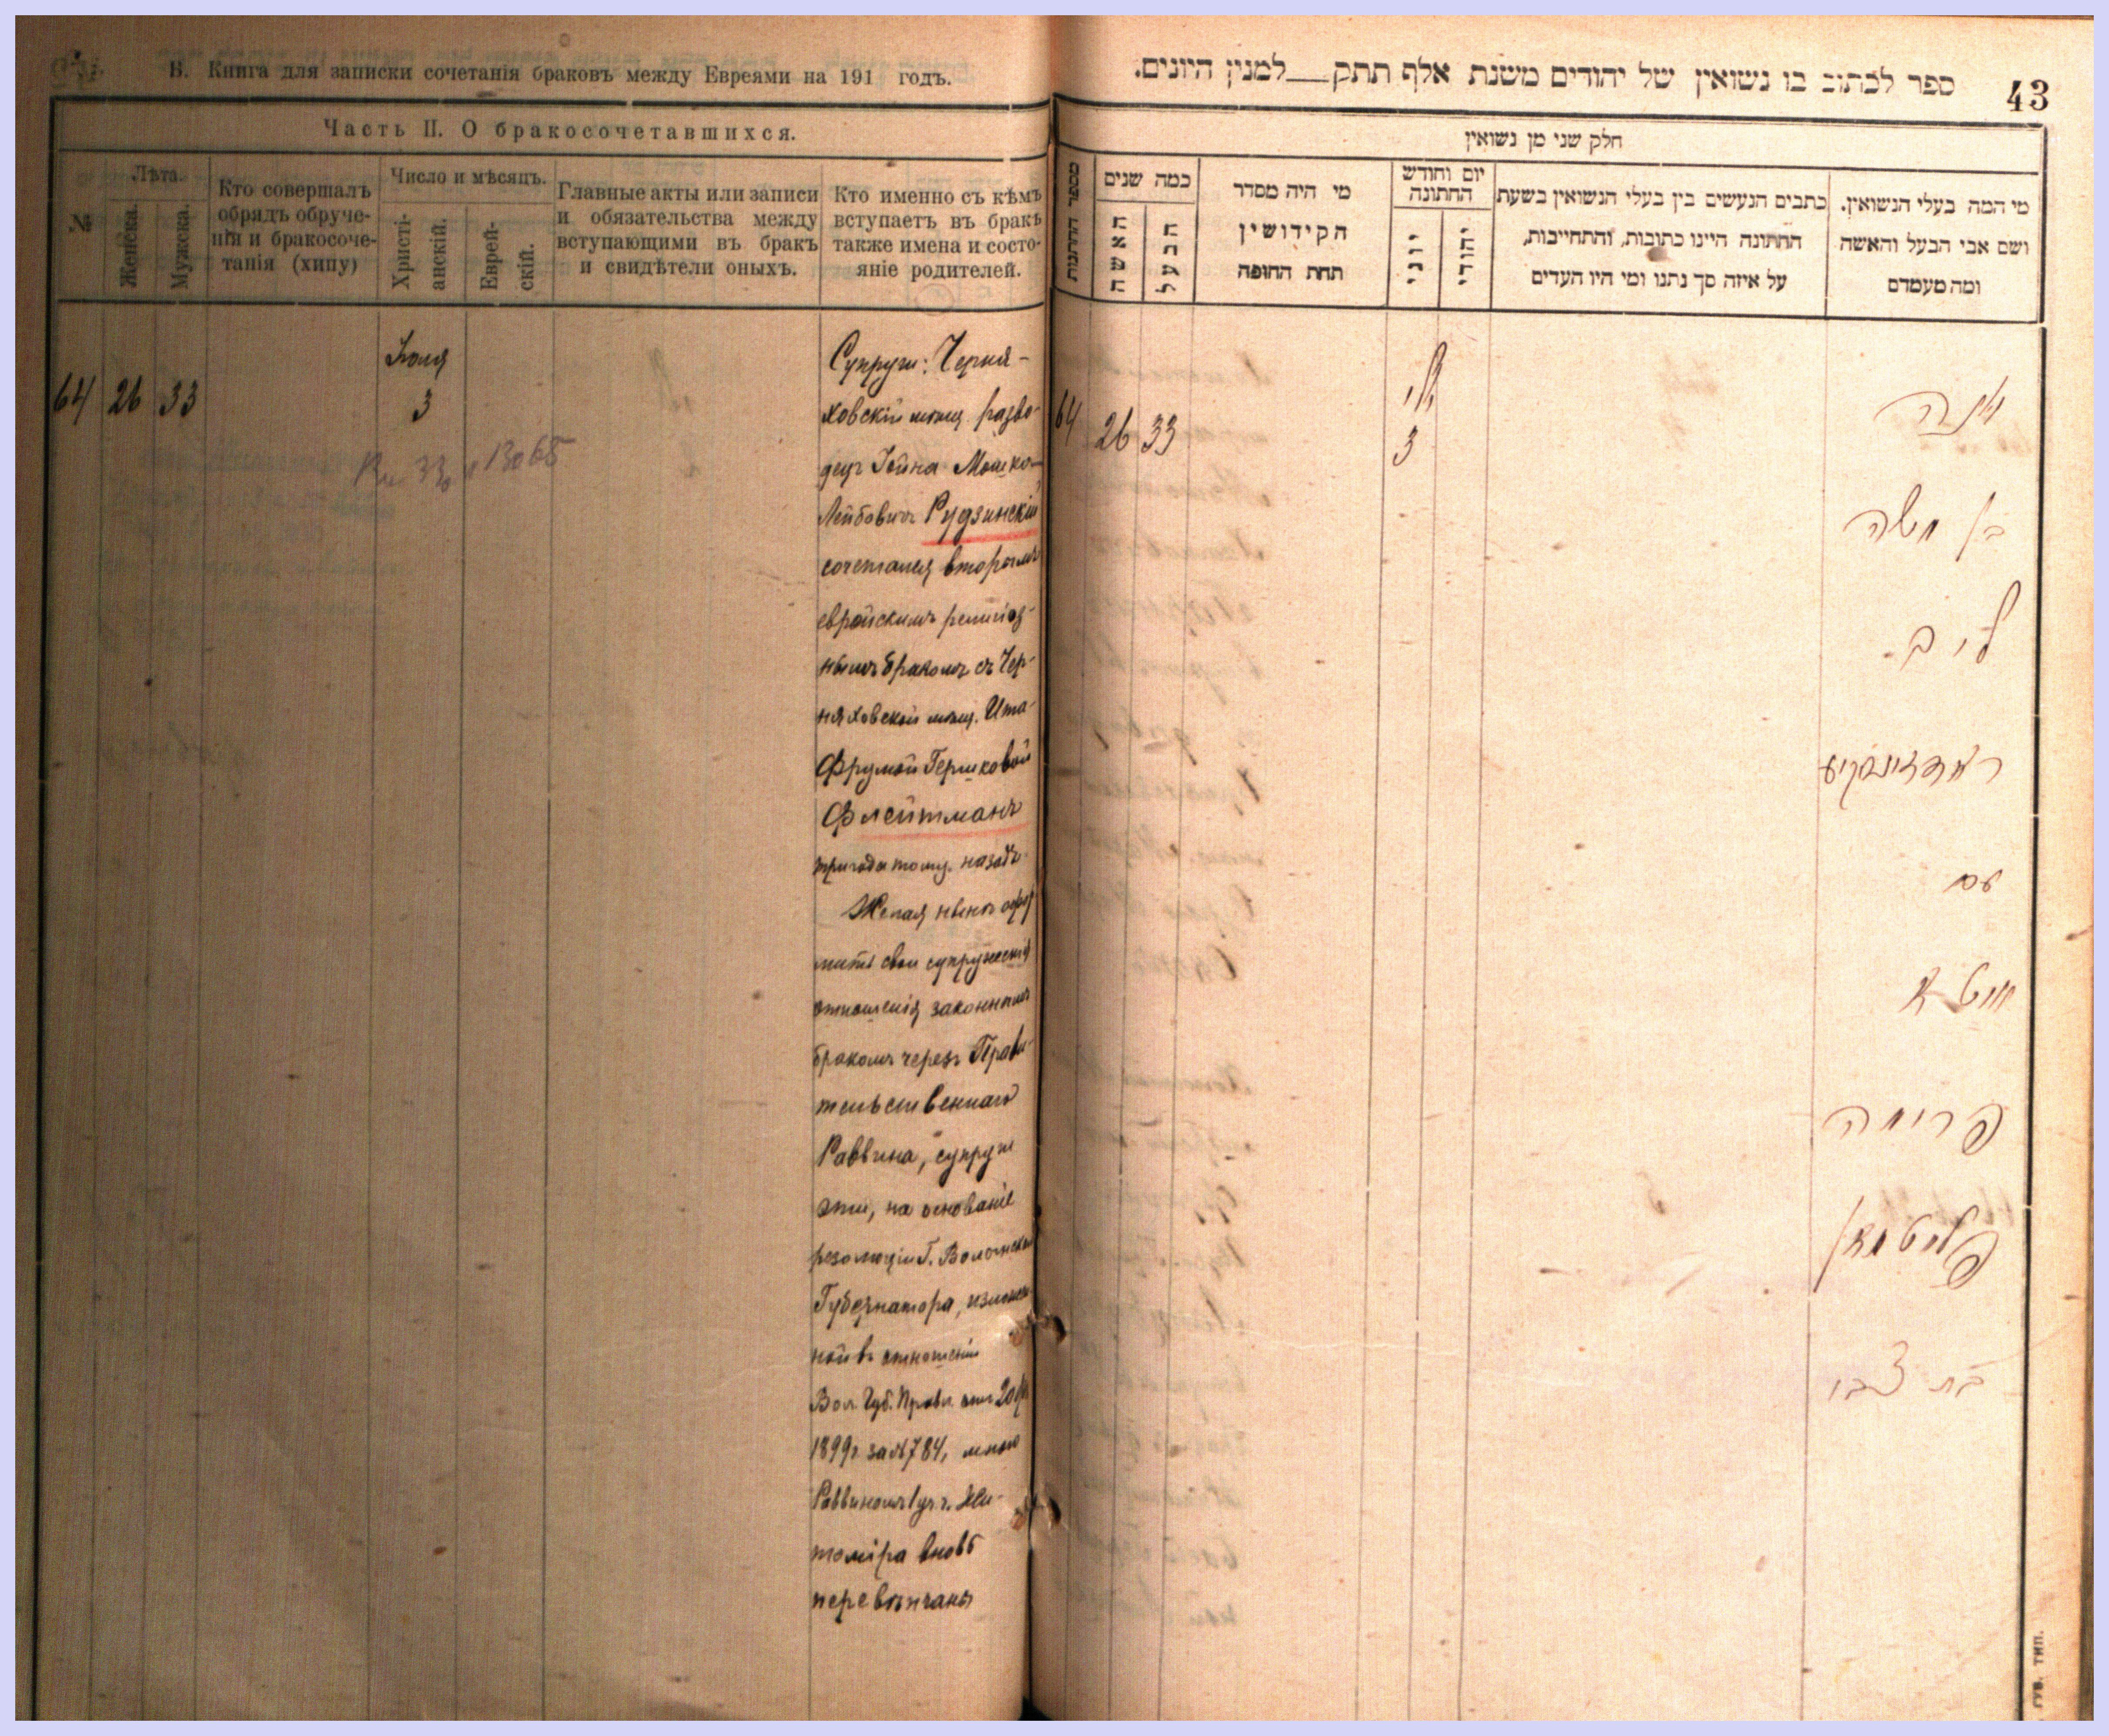 В. Книга для записки сочетанія браковъ между Евреями на 191 годъ.
Часть II. О бракосочетавшихся.
№
Лѣта.
Женска.
Мужска.
Кто совершалъ
обрядъ обруче-
нія и бракосоче-
танія (хипу)
Число и мѣсяцъ.
Христі-
анскій.
Еврей-
скій.
Главные акты или записи
и обязательства между
вступающими въ бракъ
и свидѣтели оныхъ.
Кто именно съ кѣмъ
вступаетъ въ бракъ
также имена и состо-
яніе родителей.
64 26 33
Іюля
3
Супруги: Черня-
ховскій мѣщ. разво-
децъ Іойна Мошко-
Лейбовичъ Рудзинскій
сочетался вторымъ
еврейскимъ религіоз-
нымъ бракомъ съ Чер-
няховской мѣщ. Ита-
Фрумой Гершковой
Флейтманъ
три года тому назадъ
Желая нынѣ
свои супружескія
отношенія законнымъ
бракомъ черезъ Прави-
тельственнаго
Раввина, супруги
эти, на основаніе
резолюціи Г. Волынскаго
Губернатора, изложен-
ной въ отношеніи
Вол. Губ. Правл. отъ 20
1899г за №784, мною
Раввиномъ г. Жи-
томіра вновь
перевѣнчаны
43
ספר לכתוב בו נשואין של יהודים משנת אלף תתק__למנין היונים.
חלק שני מן נשואין
מספר החתונות
כמה שנים
האשה
הבעל
מי היה מסדר
הקידושין
תחת החופה
יום וחודש
החתונה
יוני
יהודי
כתבים הנעשים בין בעלי הנשואין בשעת
החתונה היינו כתובות, והתחייבות,
על איזה סך נתנו ומי היו העדים
מי המה בעלי הנשואין.
ושם אבי הבעל והאשה
ומה מעמדם
64 26 33
3
יונה
בן משה
ליב
רודזינסקיע
עם
איטא
פרומה
פלייטמאן
בת צבי
ГУБ. ТИП.